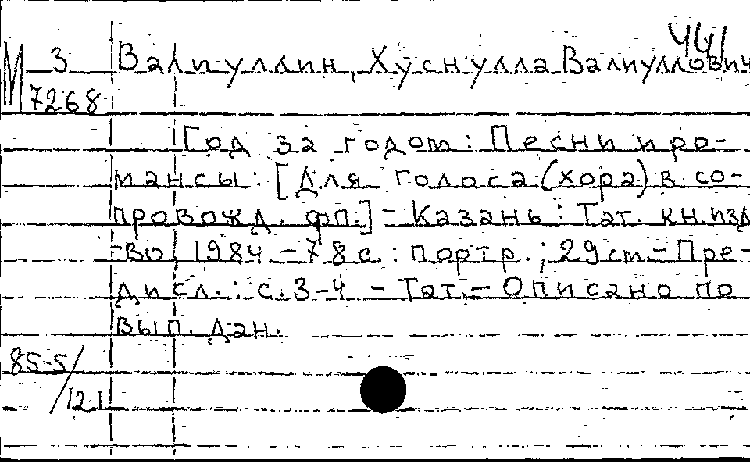 441
М 3 Валиуллин, Хуснулла Валиуллович
7268
Год за годом: Песни и ро-
мансы: [Для голоса (хора) в со-
провожд. фп.] - Казань: Тат. кн. изд
-во, 1984 - 78 с. : портр.; 29 см - Пре-
дисл.: с. 3-4 - Тат. - Описано по
вып. дан.
85-5/
/121